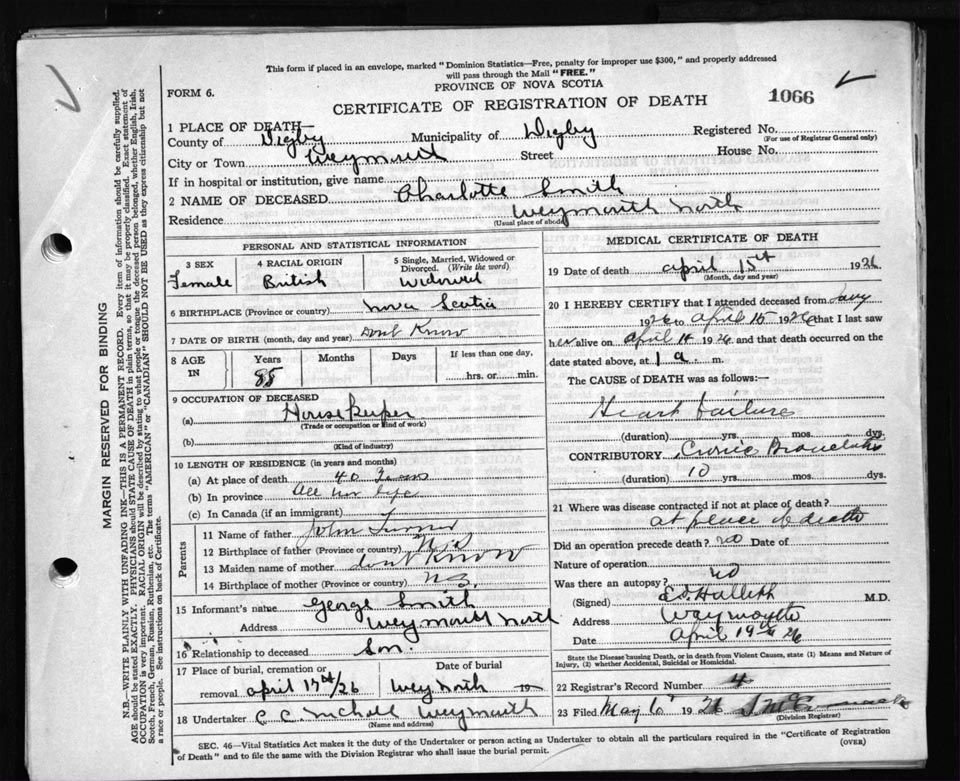 This form if placed in an envelope, marked "Dominion Statistics—Free, penalty for improper use $300," and properly addressed
will pass through the Mail "FREE."
PROVINCE OF NOVA SCOTIA
FORM 6.
CERTIFICATE OF REGISTRATION OF DEATH
1066
1 PLACE OF DEATH—
County of Digby Municipality of Digby Registered No.
(For use of Registrar General only)
City or Town Weymouth Street House No.
If in hospital or institution, give name
2 NAME OF DECEASED Charlotte Smith
Residence Weymouth North
(Usual place of abode)
PERSONAL AND STATISTICAL INFORMATION
3 SEX 4 RACIAL ORIGIN 5 Single, Married, Widowed or Divorced. (Write the word)
Female British Widowed
6 BIRTHPLACE (Province or country) Nova Scotia
7 DATE OF BIRTH (month, day and year) Dont Know
8 AGE IN Years Months Days If less than one day,
88 hrs. or min.
9 OCCUPATION OF DECEASED
(a) Housekeeper
(Trade or occupation or kind of work)
(b)
(Kind of industry)
10 LENGTH OF RESIDENCE (in years and months)
(a) At place of death 40 Years
(b) In province All her life
(c) In Canada (if an immigrant)
Parents
11 Name of father John Turner
12 Birthplace of father (Province or country) N.S
13 Maiden name of mother dont Know
14 Birthplace of mother (Province or country) N.S.
15 Informant's name George Smith
Address Weymouth North
16 Relationship to deceased Son
17 Place of burial, cremation or Date of burial
removal april 17 /26 Wey North 19
18 Undertaker C C Nichols Weymouth
(Name and address)
MEDICAL CERTIFICATE OF DEATH
19 Date of death april 15th 1926
(Month, day and year)
20 I HEREBY CERTIFY that I attended deceased from
1926 to April 15 1926 that I last saw
her alive on April 14 1926 and that death occurred on the
date stated above, at 1 a. m.
The CAUSE of DEATH was as follows:—
Heart failure
(duration) yrs. mos. dys.
CONTRIBUTORY
(duration) 10 mos. dys.
21 Where was disease contracted if not at place of death?
at place of death
Did an operation precede death? no Date of
Nature of operation
Was there an autopsy? no
(Signed) M.D.
Address Weymouth
Date April 19th 26
State the Disease causing Death, or in death from Violent Causes, state (1) Means and Nature of
Injury, (2) whether Accidental, Suicidal or Homicidal.
22 Registrar's Record Number 4
23 Filed May 6 1926
(Division Registrar)
SEC. 46—Vital Statistics Act makes it the duty of the Undertaker or person acting as Undertaker to obtain all the particulars required in the "Certificate of Registration
of Death" and to file the same with the Division Registrar who shall issue the burial permit. (OVER)
MARGIN RESERVED FOR BINDING
N.B.—WRITE PLAINLY WITH UNFADING INK—THIS IS A PERMANENT RECORD. Every item of information should be carefully supplied.
AGE should be stated EXACTLY. PHYSICIANS should STATE CAUSE OF DEATH in plain terms, so that it may be properly classified. Exact statement of
OCCUPATION is very important. RACIAL ORIGIN will be described by stating to what people or tongue the deceased person belonged, whether English, Irish,
Scotch, French, German, Russian, Ruthenian, etc. The terms "AMERICAN" or "CANADIAN" SHOULD NOT BE USED as they express citizenship but not
a race or people. See instructions on back of Certificate.